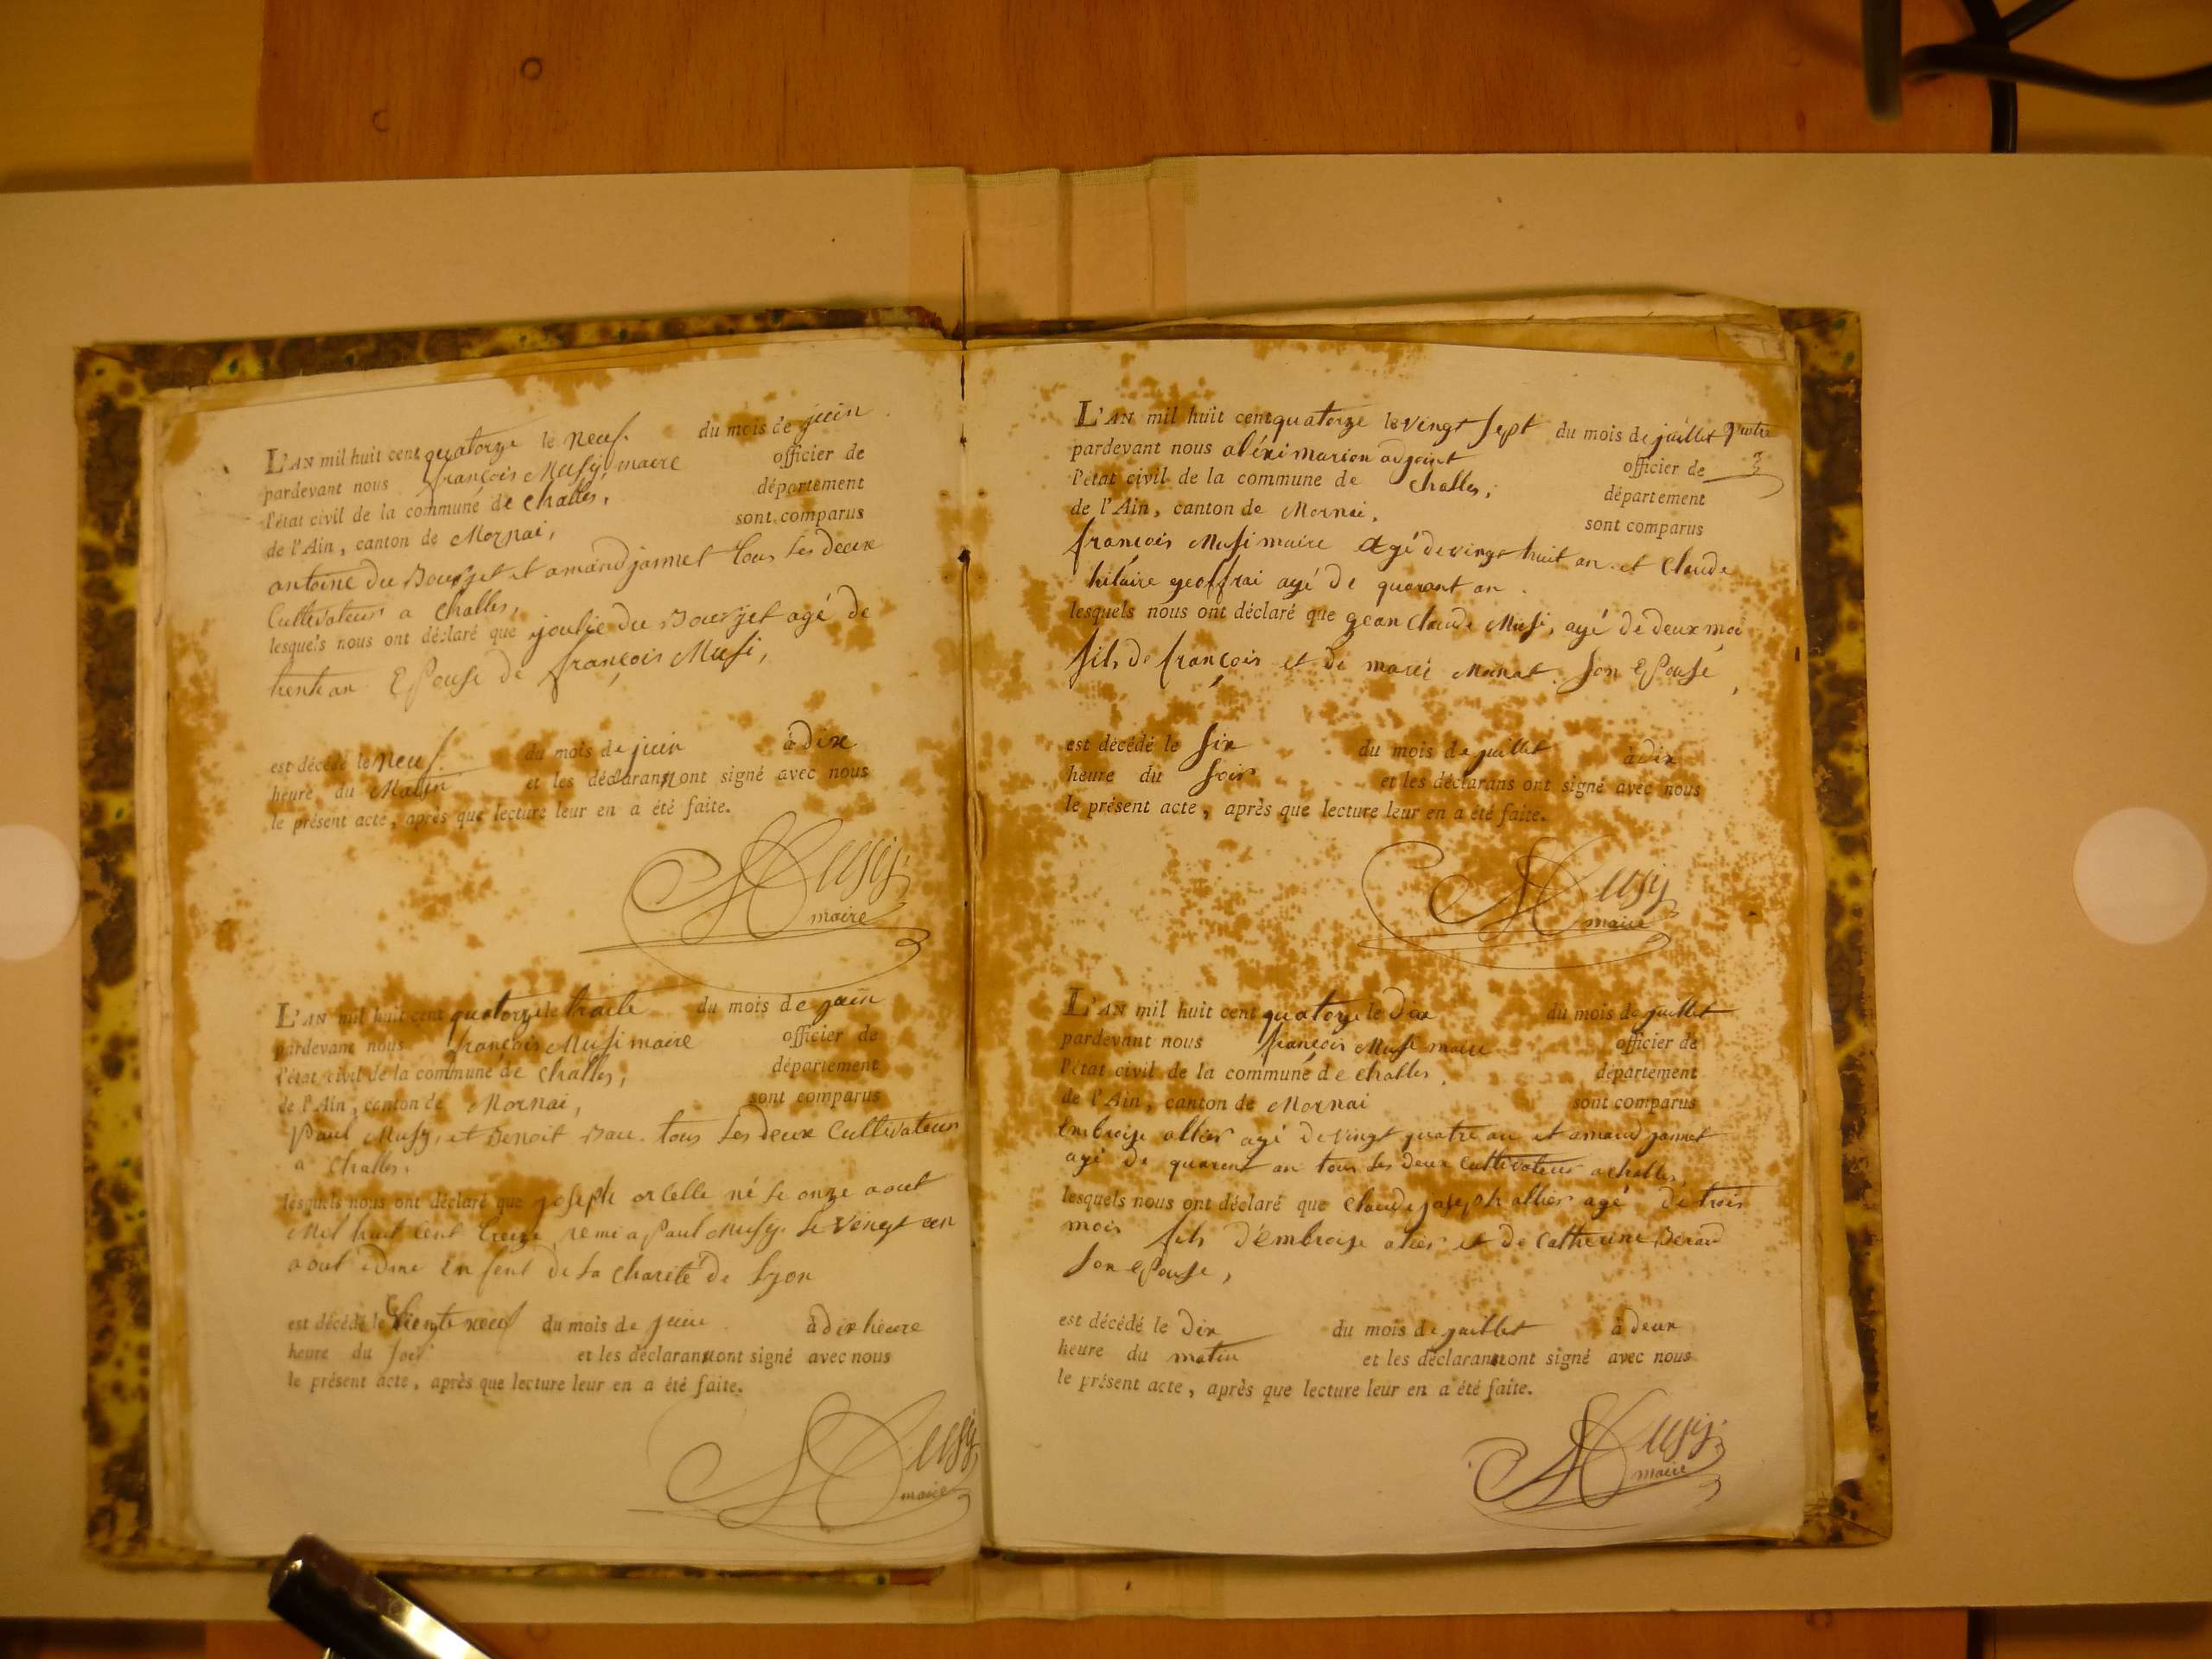 L'AN mil huit cent quatorze le neuf du mois de juin
pardevant nous françois Musy maire officier de
l'état civil de la commune de challes, département
de l'Ain, canton de Mornai, sont comparus
antoine du Bourjet et amand jannet tous les deux
Cultivateur a challes,
lesquels nous ont déclaré que joulie du Bourjet agé de
trente an Epouse de françois Musi,
est décédé le neuf du mois de juin à dix
heure du Matin et les déclarans ont signé avec nous
le présent acte, après que lecture leur en a été faite.
Musy
maire
L'AN mil huit cent quatorze le trente du mois de juin
pardevant nous françois Musi maire officier de
l'état civil de la commune de challes, département
de l'Ain, canton de Mornai, sont comparus
Paul Musy, et Benoit tous les deux Cultivateur
a challes,
lesquels nous ont déclaré que joseph orcelle né le onze aout
Mil huit Cent treize remi a Paul Musy. le vingt un
aout enfent de la charité de Lyon
est décédé le vingt neuf du mois de juin à dix heure
heure du soir et les déclarans ont signé avec nous
le présent acte, après que lecture leur en a été faite.
Musy
maire
L'AN mil huit cent quatorze le vingt sept du mois de juillet
pardevant nous aléxi marion adjoint officier de
l'état civil de la commune de challes, département
de l'Ain, canton de Mornai, sont comparus
françois Musi maire agé de vingt huit an et Claude
hilaire geoffrai agé de quarant an.
lesquels nous ont déclaré que gean Claude Musi, agé de deux moi
fils de françois et de marie Monat. son Epouse,
est décédé le six du mois de juillet à dix
heure du soir et les déclarans ont signé avec nous
le présent acte, après que lecture leur en a été faite.
Musy
maire
L'AN mil huit cent quatorze le dix du mois de juillet
pardevant nous françois Musi maire officier de
l'état civil de la commune de challes, département
de l'Ain, canton de Mornai sont comparus
Embroise allier agé de vingt quatre an et amand jannet
agé de quarent an tous les deux cultivateur a challes,
lesquels nous ont déclaré que Claude joseph allier agé de trois
mois fils d'embroise alier et de Catherine Berard
son epouse,
est décédé le dix du mois de juillet à deux
heure du matin et les déclarans ont signé avec nous
le présent acte, après que lecture leur en a été faite.
Musy
maire